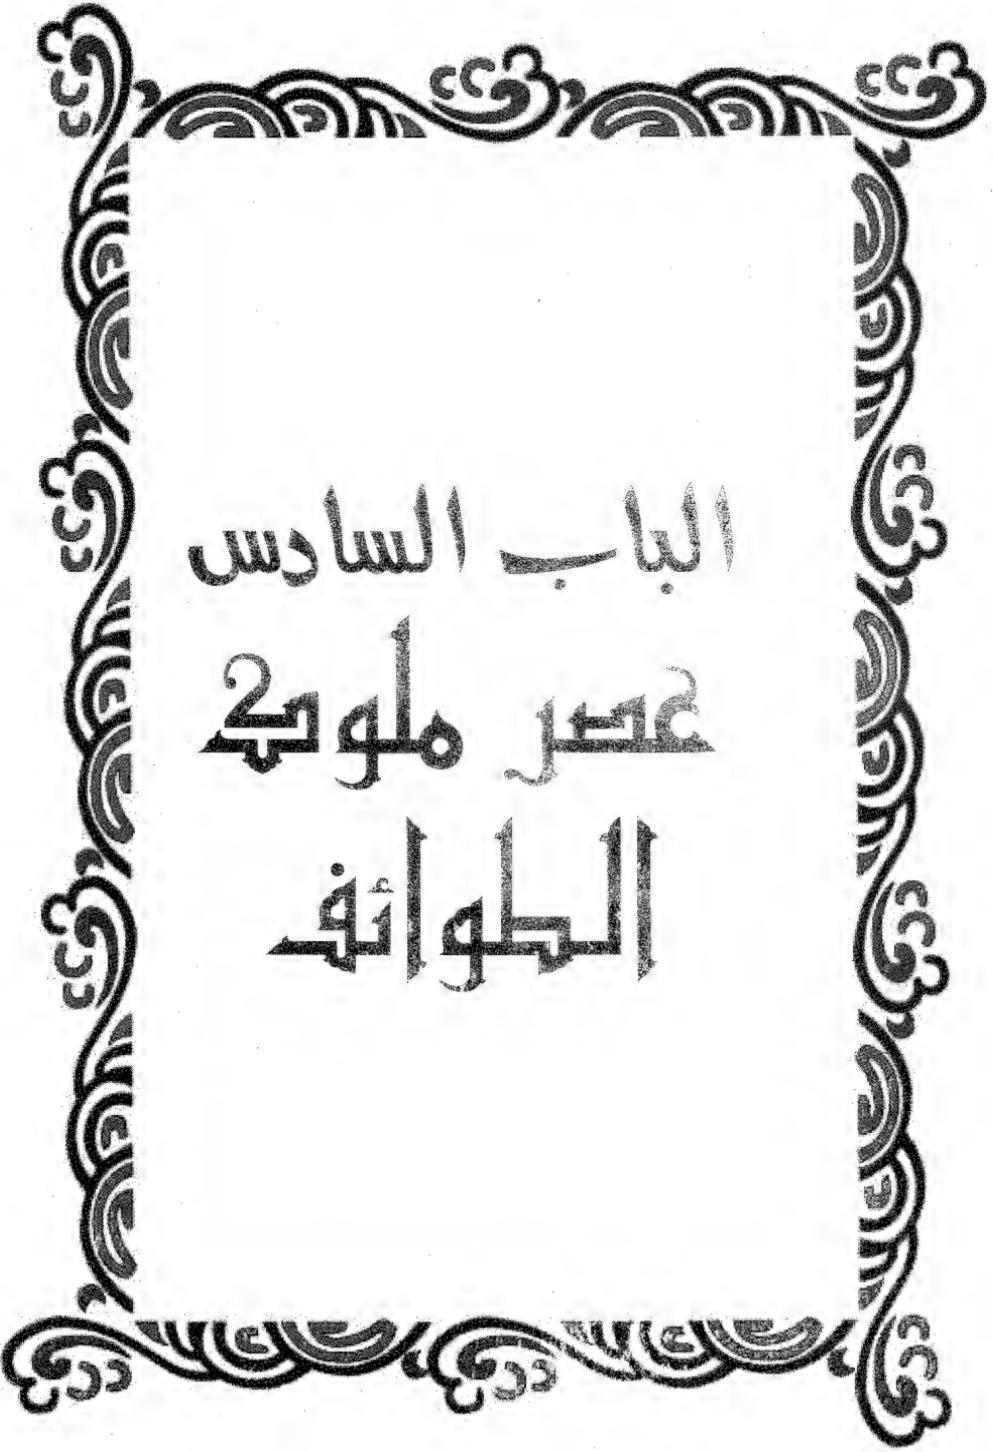 الباب السادس
عصر ملوك
الطوائف